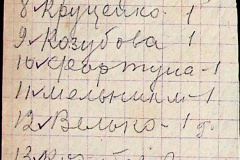 8 Круцейко - 1
9 ✓ Козубова 1
10 ✓ Фортуна - 1
11 ✓ Мельник м - 1
12 ✓ Велько - 1 г.
13